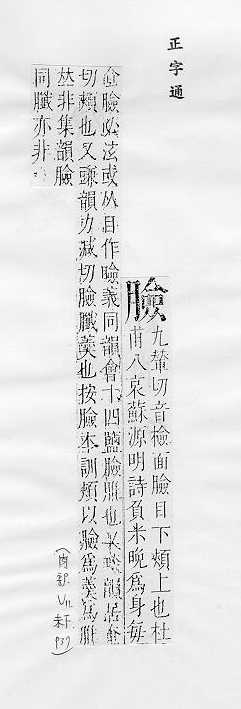 正字通
臉
九輦切音檢面臉目下頰上也杜
甫八哀蘇源明詩負米晚為身每
食臉必泫或从目作瞼義同韻會十四鹽臉也又琰韻居奄
切頰也又豏韻力減切臉羹也按臉本訓頰以臉為羹為
𠀤非集韻臉
同亦非
(肉部 未下 P37)